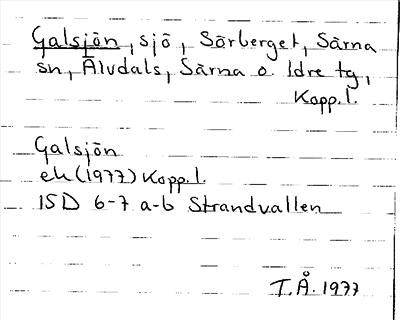 Galsjön, sjö, Särberget, Särna
sn, Älvdals, Särna o. Idre tg,
Kopp. l.
Galsjön
ek (1977) Kopp. l.
15D 6-7 a-b Strandvallen
T.Å. 1977